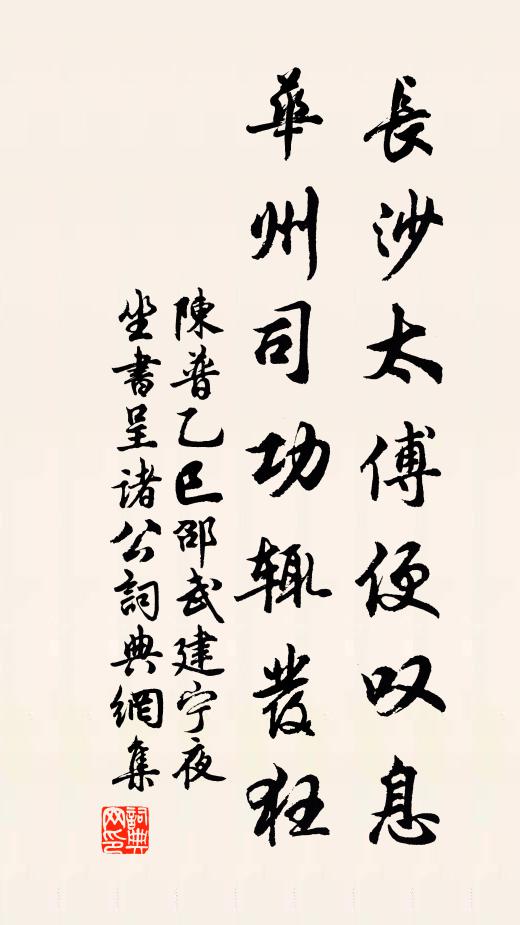 長沙太傅便叹息
華州司功辄發狂
陳普乙巳邵武建宁夜
坐書呈诸公詞典網集
詞典
网印